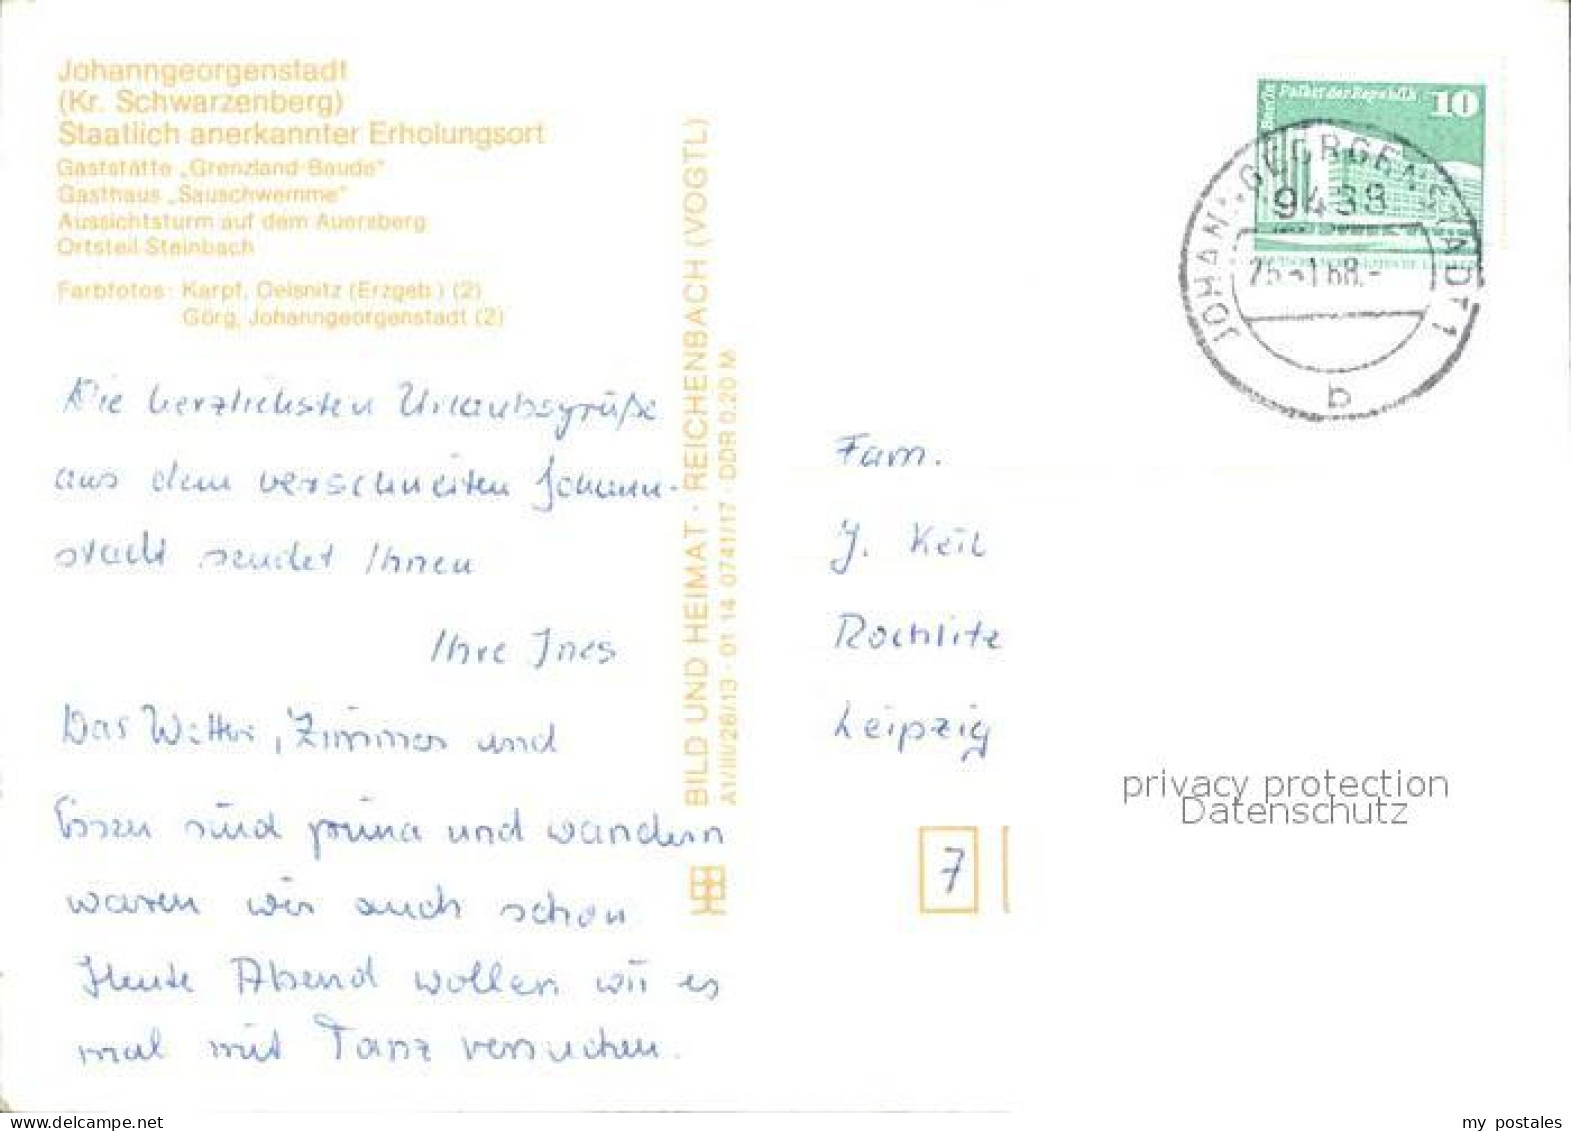 Johanngeorgenstadt
(Kr. Schwarzenberg)
Staatlich anerkannter Erholungsort
Gaststätte „Grenzland-Baude"
Gasthaus „Sauschwemme"
Aussichtsturm auf dem Auersberg
Ortsteil Steinbach
Farbfotos: Karpf, Oelsnitz (Erzgeb.) (2)
Görg, Johanngeorgenstadt (2)
Die herzlichsten Urlaubsgrüße
aus dem verschneiten Johann-
stadt sendet Ihnen
Ihre Ines
Das Wetter, Zimmer und
Essen sind prima und wandern
waren wir auch schon
Heute Abend wollen wir es
mal mit Tanz versuchen.
BILD UND HEIMAT · REICHENBACH (VOGTL)
A1/III/26/13 · 01 14 0741/17 · DDR 0,20 M
Berlin Palast der Republik 10
JOHANNGEORGENSTADT 1
9438
b
Fam.
J. Keil
Rochlitz
Leipzig
7
privacy protection
Datenschutz
my postales
www.delcampe.net